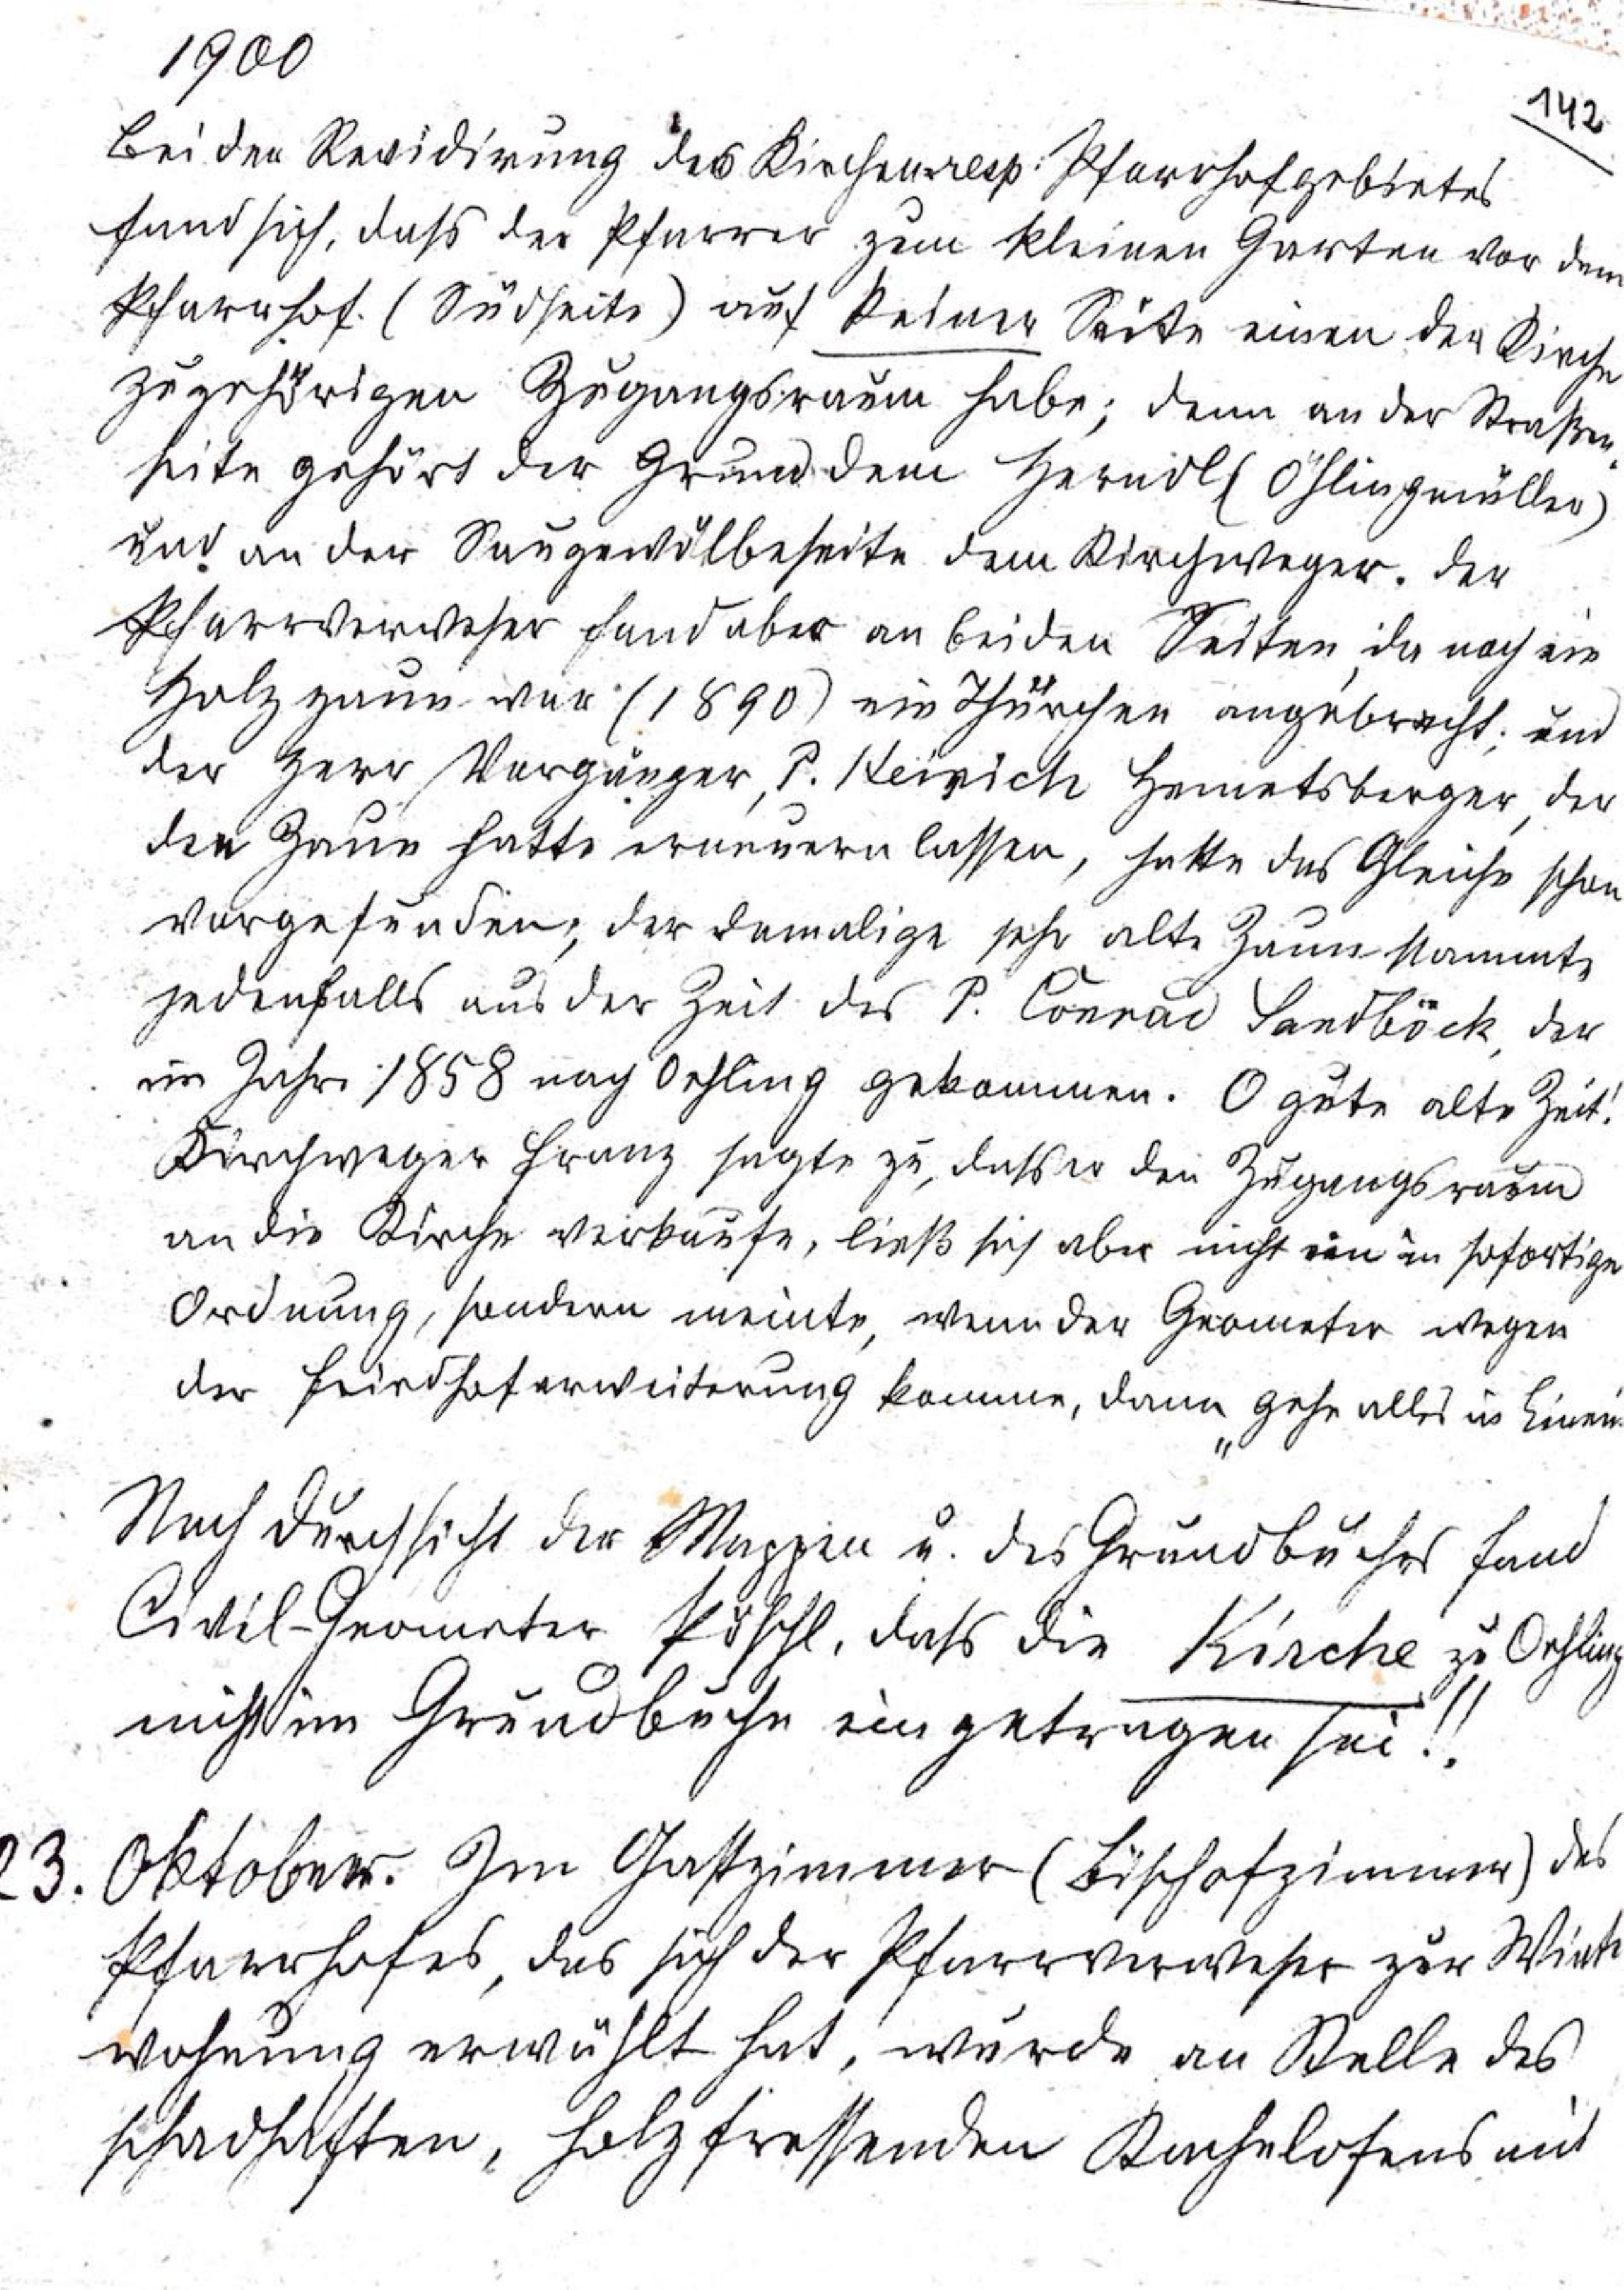 1900
142
Bei der Revidirung des Kirchen- resp. Pfarrhofgebietes
fand sich, dass der Pfarrer zum kleinen Garten vor dem
Pfarrhof (Südseite) auf keiner Seite einen der Kirche
zugehörigen Zugangsraum habe; denn an der Straßen-
seite gehört der Grund dem Herndl (Öhlingmüller)
und an der Saugewölbeseite dem Kirchweger. Der
Pfarrverweser fand aber an beiden Seiten, da noch ein
Holzzaun war (1890) ein Thürchen angebracht; und
der Herr Vorgänger, P. Heinrich Hemetsberger, der
den Zaun hatte erneuern lassen, hatte das Gleiche schon
vorgefunden; der damalige sehr alte Zaun stammte
jedenfalls aus der Zeit des P. Conrad Sandböck, der
im Jahre 1858 nach Oehling gekommen. O gute alte Zeit!
Kirchweger Franz sagte zu, dass er den Zugangsraum
an die Kirche verkaufe, ließ sich aber nicht ein in sofortige
Ordnung, sondern meinte, wenn der Geometer wegen
der Friedhoferweiterung komme, dann „gehe alles in Einem
Nach Durchsicht der Mappen u. des Grundbuches fand
Civil-Geometer Pöschl, dass die Kirche zu Oehling
nicht im Grundbuche eingetragen sei!!
23. Oktober. Im Gastzimmer (Bischofzimmer) des
Pfarrhofes, das sich der Pfarrverweser zur Winter
wohnung erwählt hat, wurde an Stelle des
schadhaften, holzfressenden Kachelofens mit